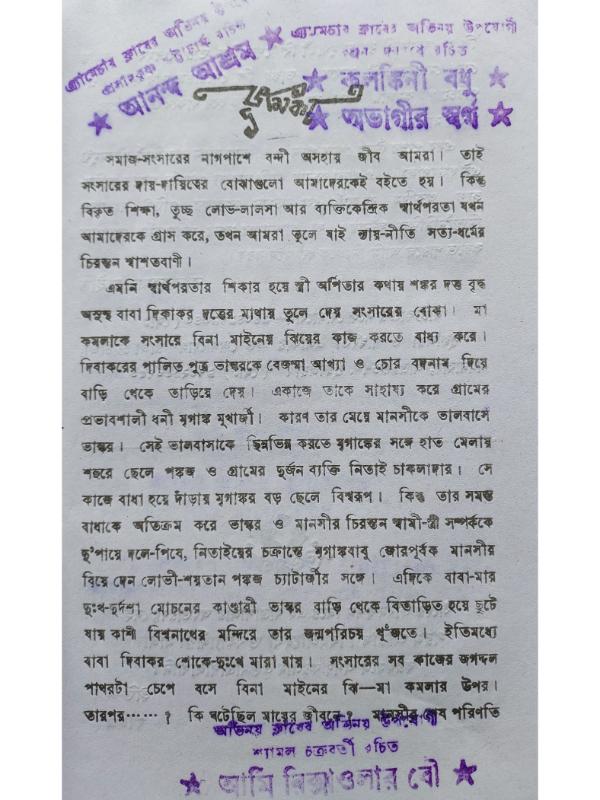 এ্যামেচার ক্লাবের অভিনয়
প্রসাদকৃষ্ণ ভট্টাচার্য রচিত
★ আনন্দ আশ্রম ★
এ্যামেচার ক্লাবের অভিনয় উপযোগী
রচিত
★ কলঙ্কিনী বধূ ★
★ অভাগীর স্বর্গ ★
ভূমিকা
সমাজ-সংসারের নাগপাশে বন্দী অসহায় জীব আমরা। তাই
সংসারের দায়-দায়িত্বের বোঝাগুলো আমাদেরকেই বইতে হয়। কিন্তু
বিকৃত শিক্ষা, তুচ্ছ লোভ-লালসা আর ব্যক্তিকেন্দ্রিক স্বার্থপরতা যখন
আমাদেরকে গ্রাস করে, তখন আমরা ভুলে যাই ন্যায়-নীতি সত্য-ধর্মের
চিরন্তন শাশ্বতবাণী।
এমনি স্বার্থপরতার শিকার হয়ে স্ত্রী অর্পিতার কথায় শঙ্কর দত্ত বৃদ্ধ
অসুস্থ বাবা দিবাকর দত্তের মাথায় তুলে দেয় সংসারের বোঝা। মা
কমলাকে সংসারে বিনা মাইনের ঝিয়ের কাজ করতে বাধ্য করে।
দিবাকরের পালিত পুত্র ভাস্করকে বেজন্মা আখ্যা ও চোর বদনাম দিয়ে
বাড়ি থেকে তাড়িয়ে দেয়। একাজে তাকে সাহায্য করে গ্রামের
প্রভাবশালী ধনী মৃগাঙ্ক মুখার্জী। কারণ তার মেয়ে মানসীকে ভালবাসে
ভাস্কর। সেই ভালবাসাকে ছিন্নভিন্ন করতে মৃগাঙ্কের সঙ্গে হাত মেলায়
শহুরে ছেলে পঙ্কজ ও গ্রামের দুর্জন ব্যক্তি নিতাই চাকলাদার। সে
কাজে বাধা হয়ে দাঁড়ায় মৃগাঙ্কর বড় ছেলে বিশ্বরূপ। কিন্তু তার সমস্ত
বাধাকে অতিক্রম করে ভাস্কর ও মানসীর চিরন্তন স্বামী-স্ত্রী সম্পর্ককে
দু'পায়ে দলে-পিষে, নিতাইয়ের চক্রান্তে মৃগাঙ্কবাবু জোরপূর্বক মানসীর
বিয়ে দেন লোভী-শয়তান পঙ্কজ চ্যাটার্জীর সঙ্গে। এদিকে বাবা-মার
দুঃখ-দুর্দশা মোচনের কাণ্ডারী ভাস্কর বাড়ি থেকে বিতাড়িত হয়ে ছুটে
যায় কাশী বিশ্বনাথের মন্দিরে তার জন্মপরিচয় খুঁজতে। ইতিমধ্যে
বাবা দিবাকর শোকে-দুঃখে মারা যায়। সংসারের সব কাজের জগদ্দল
পাথরটা চেপে বসে বিনা মাইনের ঝি—মা কমলার উপর।
তারপর……? কি ঘটেছিল মায়ের জীবনে? মানসীর শেষ পরিণতি
অভিনয় ক্লাবের অভিনয় উপযোগী
শ্যামল চক্রবর্তী রচিত
★ আমি রিক্সাওলার বৌ ★